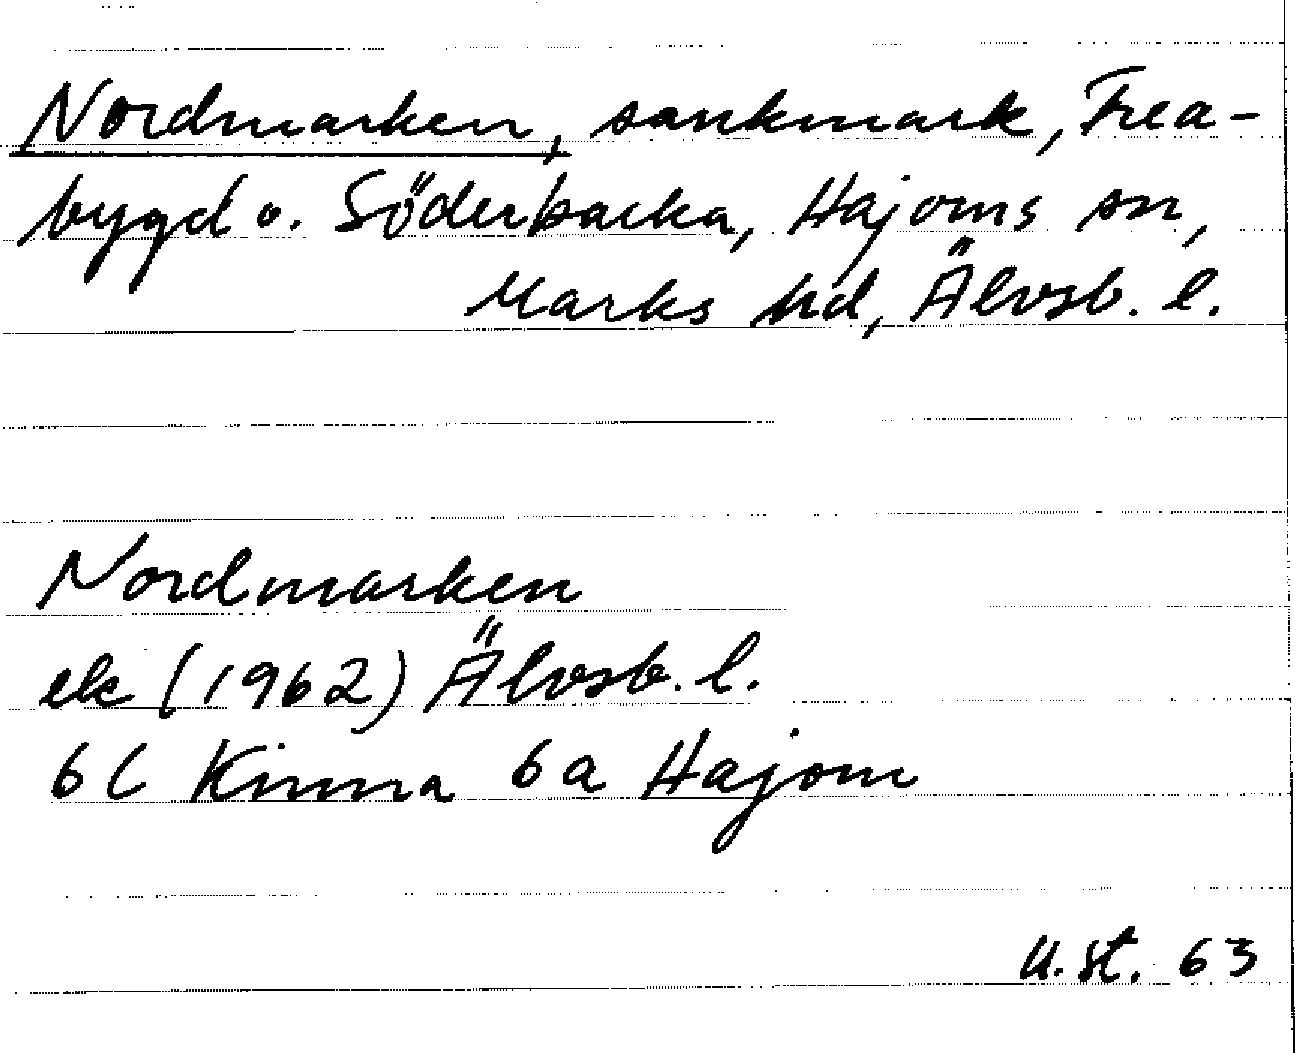 Nordmarken, sankmark, Frea-
bygd o. Söderbacka, Hajoms sn,
Marks hd, Älvsb. l.
Nordmarken
ek (1962) Älvsb. l.
6C Kinna 6a Hajom
U. St. 63